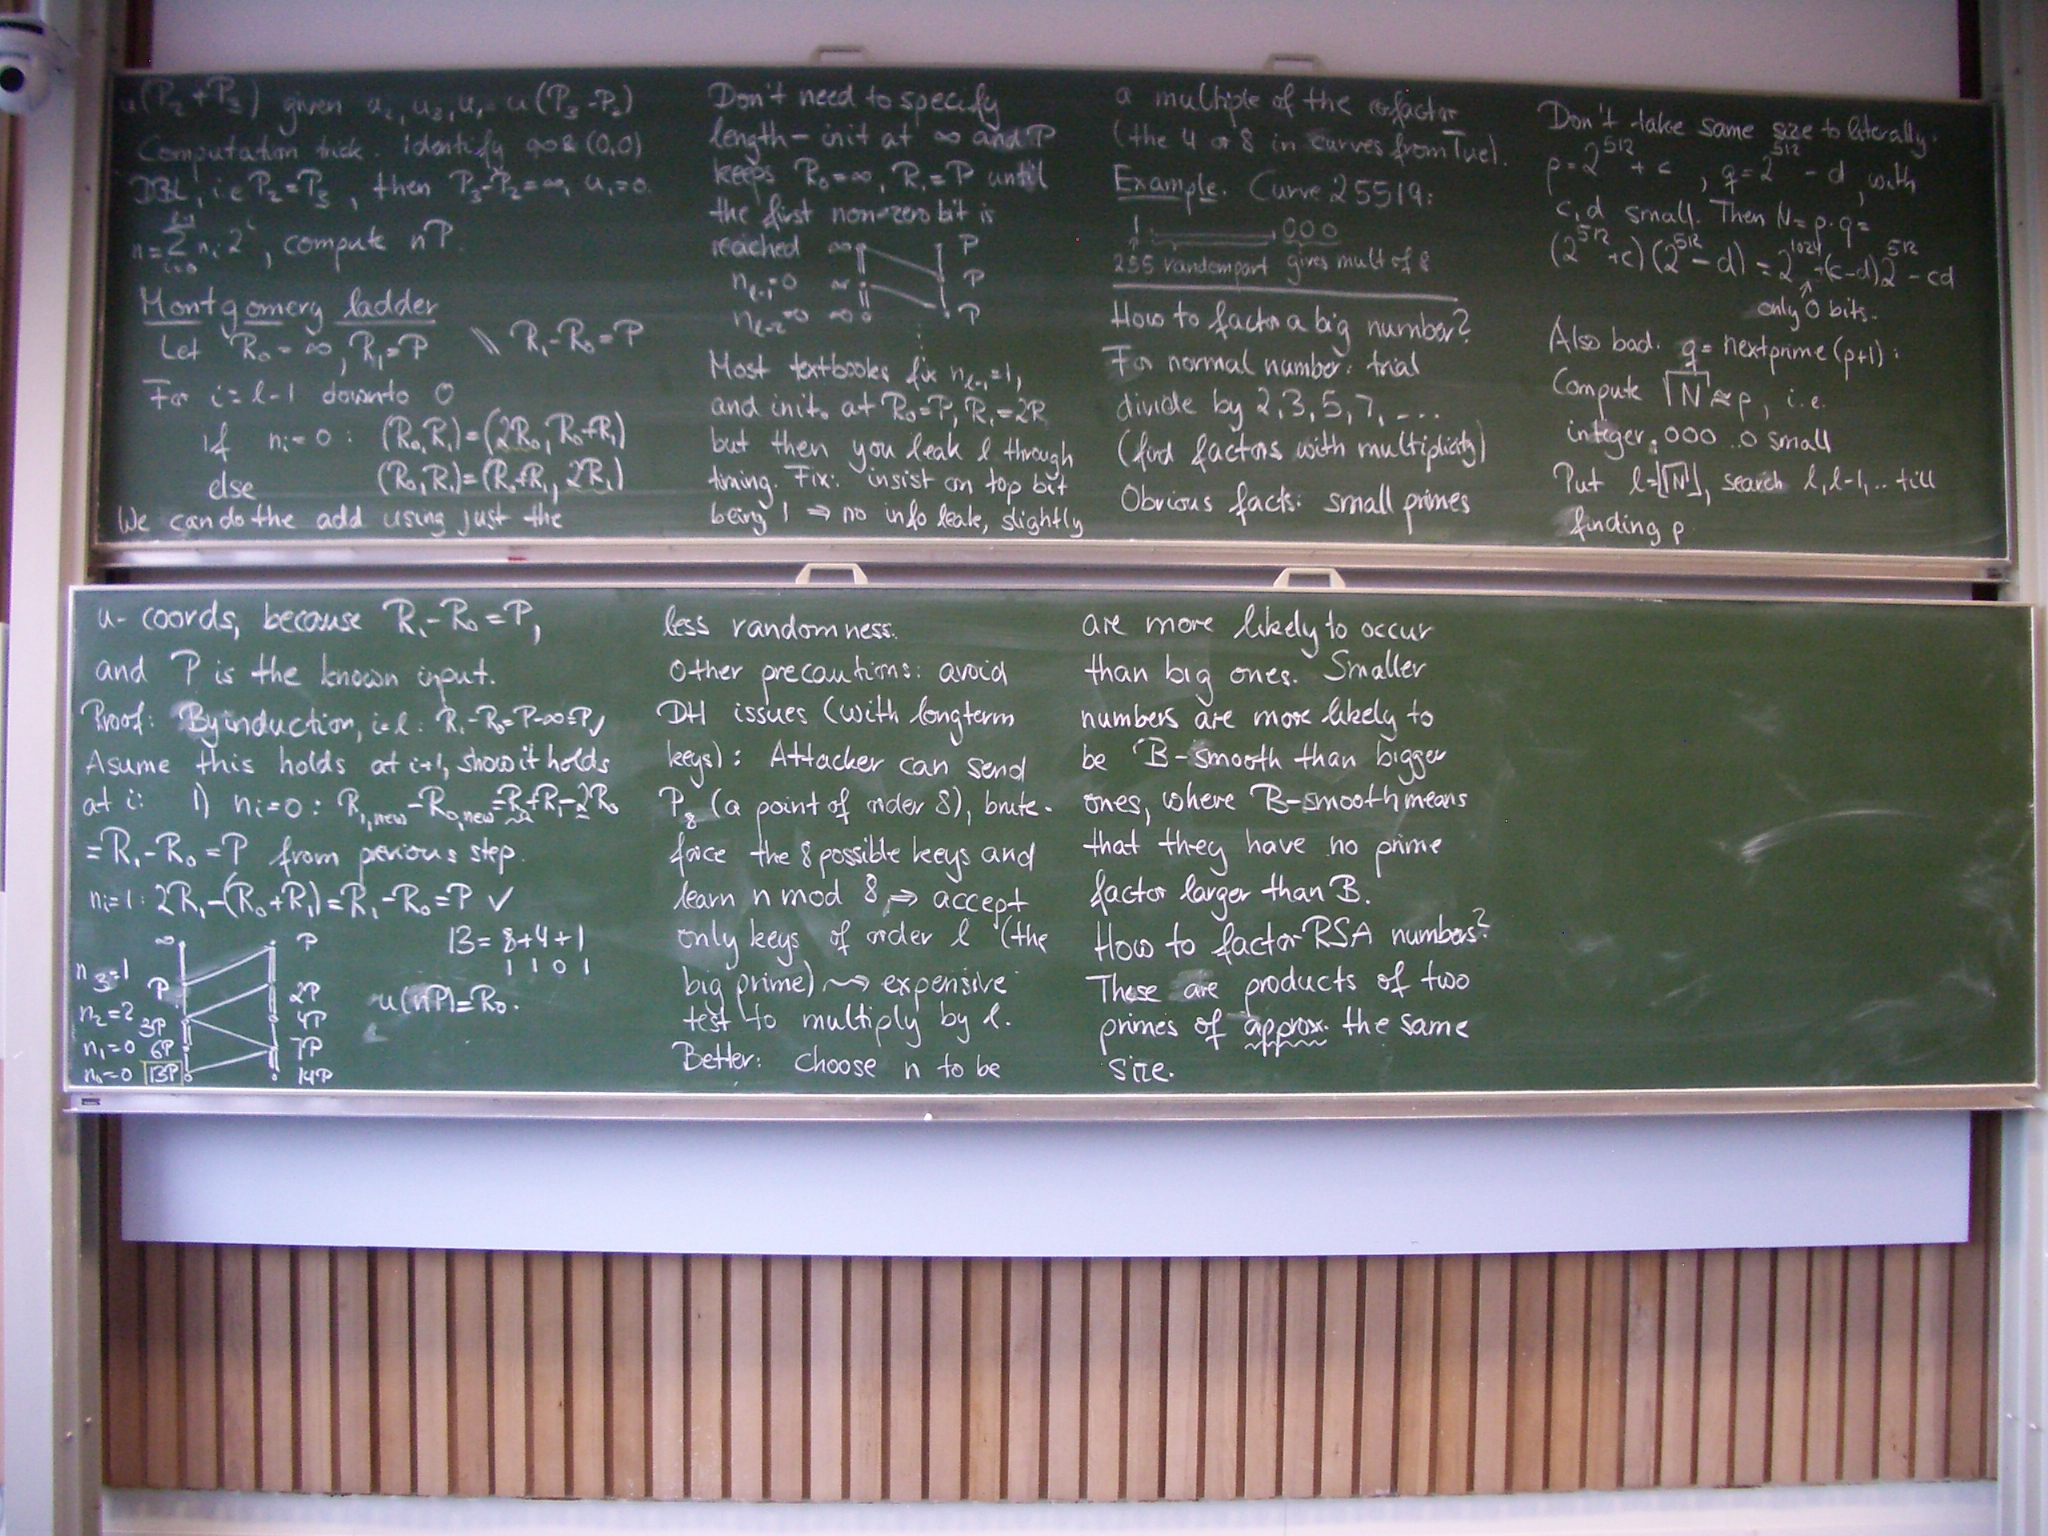 u(P₂+P₃) given u₂, u₃, u₁= u(P₃-P₂)
Computation trick. identify ∞ & (0,0)
DBL, i.e P₂=P₃, then P₃-P₂=∞, u₁=0.
n=∑ nᵢ 2ⁱ, compute nP.
l-1
i=0
Montgomery ladder
Let R₀=∞, R₁=P \\ R₁-R₀=P
For i=l-1 downto 0
if nᵢ=0: (R₀,R₁)=(2R₀, R₀+R₁)
else (R₀,R₁)=(R₀+R₁, 2R₁)
We can do the add using just the
u- coords, because R₁-R₀=P,
and P is the known input.
Proof: By induction, i=l: R₁-R₀=P-∞=P✓
Asume this holds at i+1, show it holds
at i: 1) nᵢ=0: R₁,new-R₀,new=R₀+R₁-2R₀
=R₁-R₀=P from previous step.
nᵢ=1: 2R₁-(R₀+R₁)=R₁-R₀=P ✓
∞ P 13= 8+4+1
n₃=1 1 1 0 1
P 2P u(nP)=R₀.
n₂=2 3P 4P
n₁=0 6P 7P
n₀=0 13P 14P
Don't need to specify
length- init at ∞ and P
keeps R₀=∞, R₁=P until
the first non-zero bit is
reached ∞ P
nₗ₋₁=0 ∞ P
nₗ₋₂=0 ∞ P
Most textbooks fix nₗ₋₁=1,
and init. at R₀=P, R₁=2P
but then you leak l through
timing. Fix: insist on top bit
being 1 ⇒ no info leak, slightly
less randomness.
Other precautions: avoid
DH issues (with longterm
keys): Attacker can send
P₈ (a point of order 8), brute-
force the 8 possible keys and
learn n mod 8 ⇒ accept
only keys of order l (the
big prime) ⇝ expensive
test to multiply by l.
Better: choose n to be
a multiple of the cofactor
(the 4 or 8 in curves from Tue).
Example. Curve 25519:
1 000
255 random part gives mult of 8
How to factor a big number?
For normal number: trial
divide by 2,3,5,7,....
(find factors with multiplicity)
Obvious facts: small primes
are more likely to occur
than big ones. Smaller
numbers are more likely to
be B-smooth than bigger
ones, where B-smooth means
that they have no prime
factor larger than B.
How to factor RSA numbers?
These are products of two
primes of approx. the same
size.
Don't take same size to literally:
p=2⁵¹²+c, q=2⁵¹²-d, with
c,d small. Then N=p·q=
(2⁵¹²+c)(2⁵¹²-d)=2¹⁰²⁴+(c-d)2⁵¹²-cd
↑
only 0 bits.
Also bad. q= nextprime(p+1):
Compute √N≈p, i.e.
integer.000..0 small
Put l=⌊√N⌋, search l,l-1,.. till
finding p